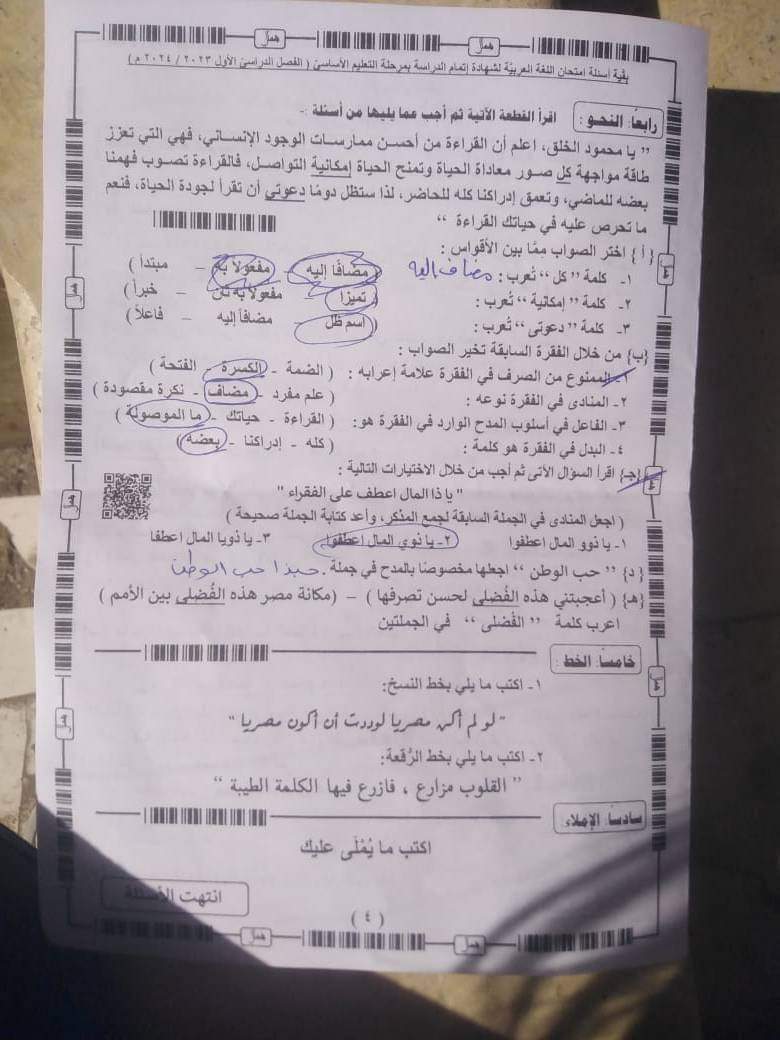 همل همل
بقية أسئلة امتحان اللغة العربية لشهادة إتمام الدراسة بمرحلة التعليم الأساسي ( الفصل الدراسي الأول ٢٠٢٣ / ٢٠٢٤ م )
رابعاً: النحو : اقرأ القطعة الآتية ثم أجب عما يليها من أسئلة :-
” يا محمود الخلق، اعلم أن القراءة من أحسن ممارسات الوجود الإنساني، فهي التي تعزز
طاقة مواجهة كل صور معاداة الحياة وتمنح الحياة إمكانية التواصل، فالقراءة تصوب فهمنا
بعضه للماضي، وتعمق إدراكنا كله للحاضر، لذا ستظل دومًا دعوتي أن تقرأ لجودة الحياة، فنعم
ما تحرص عليه في حياتك القراءة “
{ أ } اختر الصواب ممًا بين الأقواس :
١- كلمة ” كل “ تُعرب : مضاف إليه ( مضافًا إليه - مفعولًا به - مبتدأ )
٢- كلمة ” إمكانية “ تُعرب : ( تميزًا - مفعولًا به ثان - خبراً )
٣- كلمة ” دعوتي “ تُعرب : ( اسم ظل - مضافاً إليه - فاعلاً )
{ب} من خلال الفقرة السابقة تخير الصواب :
١- الممنوع من الصرف في الفقرة علامة إعرابه : ( الضمة - الكسرة - الفتحة )
٢- المنادى في الفقرة نوعه : ( علم مفرد - مضاف - نكرة مقصودة )
٣- الفاعل في أسلوب المدح الوارد في الفقرة هو: ( القراءة - حياتك - ما الموصولة )
٤- البدل في الفقرة هو كلمة : ( كله - إدراكنا - بعضه )
{جـ} اقرأ السؤال الآتى ثم أجب من خلال الاختيارات التالية :
" يا ذا المال اعطف على الفقراء "
( اجعل المنادى في الجملة السابقة لجمع المذكر، وأعد كتابة الجملة صحيحة )
١- يا ذوو المال اعطفوا ٢- يا ذوي المال اعطفوا ٣- يا ذويا المال اعطفا
{د} ” حب الوطن “ اجعلها مخصوصًا بالمدح في جملة . حبذا حب الوطن
{هـ} ( أعجبتني هذه الفُضلى لحسن تصرفها ) – (مكانة مصر هذه الفُضلى بين الأمم )
اعرب كلمة ” الفُضلى “ في الجملتين
خامساً: الخط :
١- اكتب ما يلي بخط النسخ:
" لو لم أكن مصريا لوددت أن أكون مصريا "
٢- اكتب ما يلي بخط الرُقعة:
” القلوب مزارع ، فازرع فيها الكلمة الطيبة “
سادساً: الإملاء :
اكتب ما يُمْلَى عليك
انتهت الأسئلة
( ٤ )
همل همل